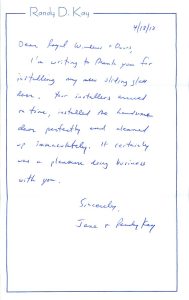 Randy D. Kay
4/18/12
Dear Royal Windows & Doors,
I'm writing to thank you for
installing my new sliding glass
door. Your installers arrived
on time, installed the handsome
door perfectly and cleaned
up immaculately. It certainly
was a pleasure doing business
with you.
Sincerely,
Jane & Randy Kay